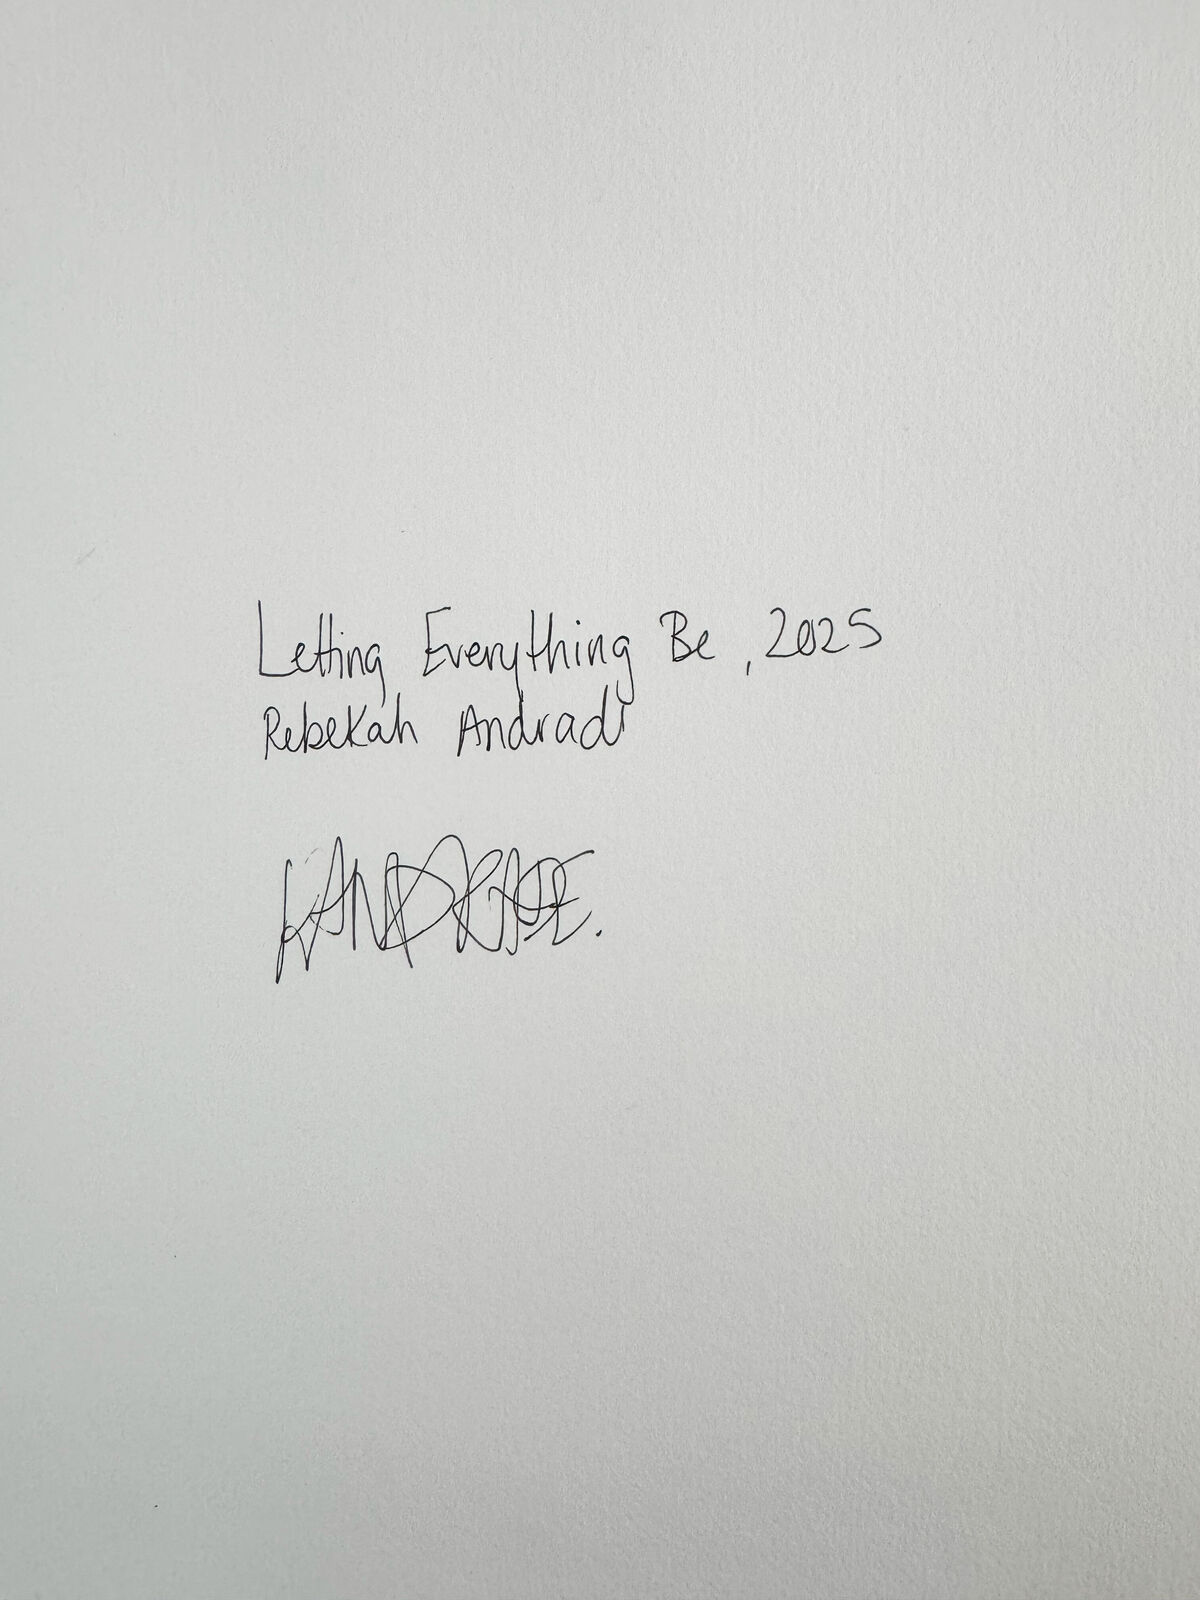 Letting Everything Be, 2025
Rebekah Andradi
ANDRADE.